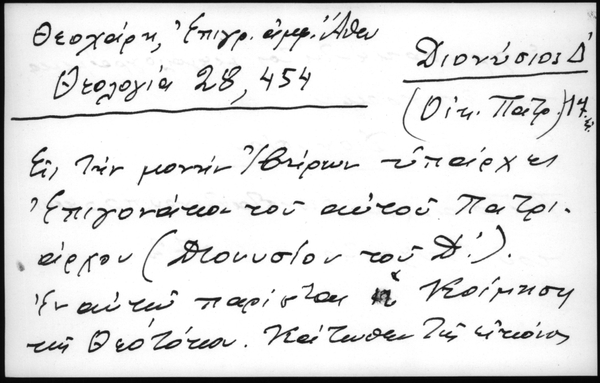 Θεοχάρη, Ἐπιγρ. ἀμφ. Ἄθω
Θεολογία 28, 454
Διονύσιος Δ΄
(Οἰκ. Πατρ.) 17
Εἰς τὴν μονὴν Ἰβήρων ὑπάρχει
ἐπιγονάτιον τοῦ αὐτοῦ Πατρι-
άρχου (Διονυσίου τοῦ Δ΄).
Ἐν αὐτῷ παρίσταται ἡ Κοίμησις
τῆς Θεοτόκου. Κάτωθεν τῆς εἰκόνος